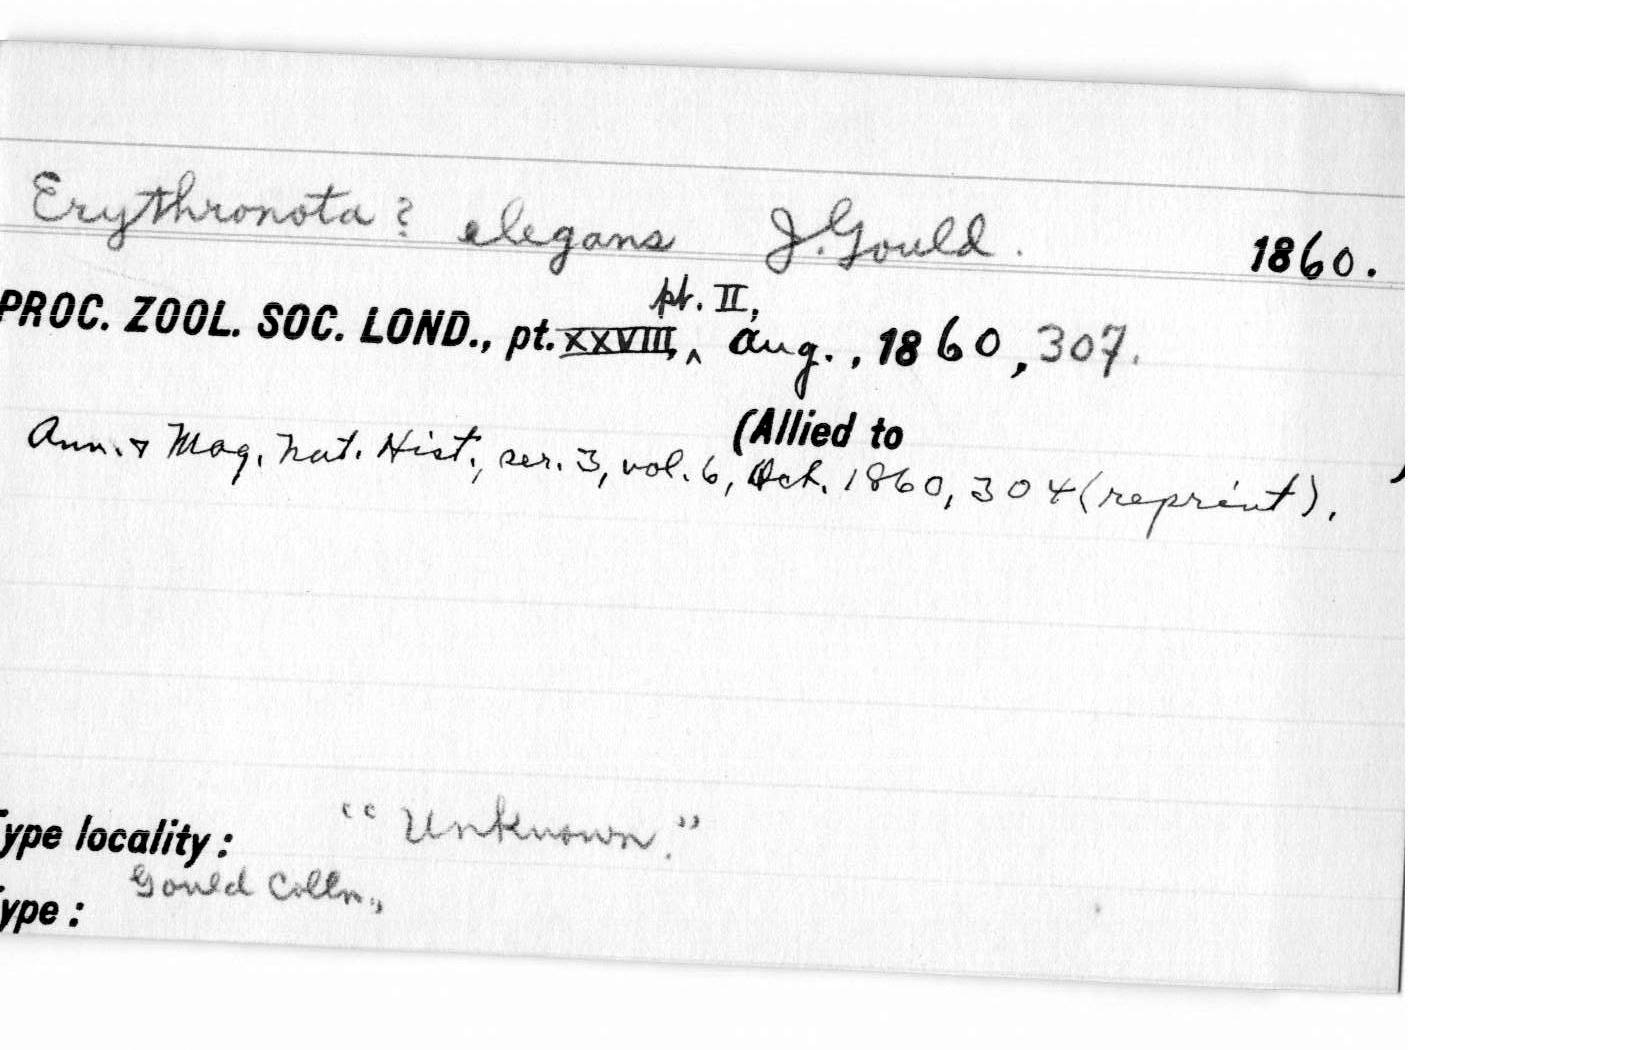 Erythronota? elegans J. Gould. 1860.
pt. II,
PROC. ZOOL. SOC. LOND., pt. XXVIII, ^ Aug., 1860, 307.
(Allied to )
Ann. & Mag. Nat. Hist., ser. 3, vol. 6, Oct. 1860, 304 (reprint).
ype locality: "Unknown."
Gould Colln.,
ype: